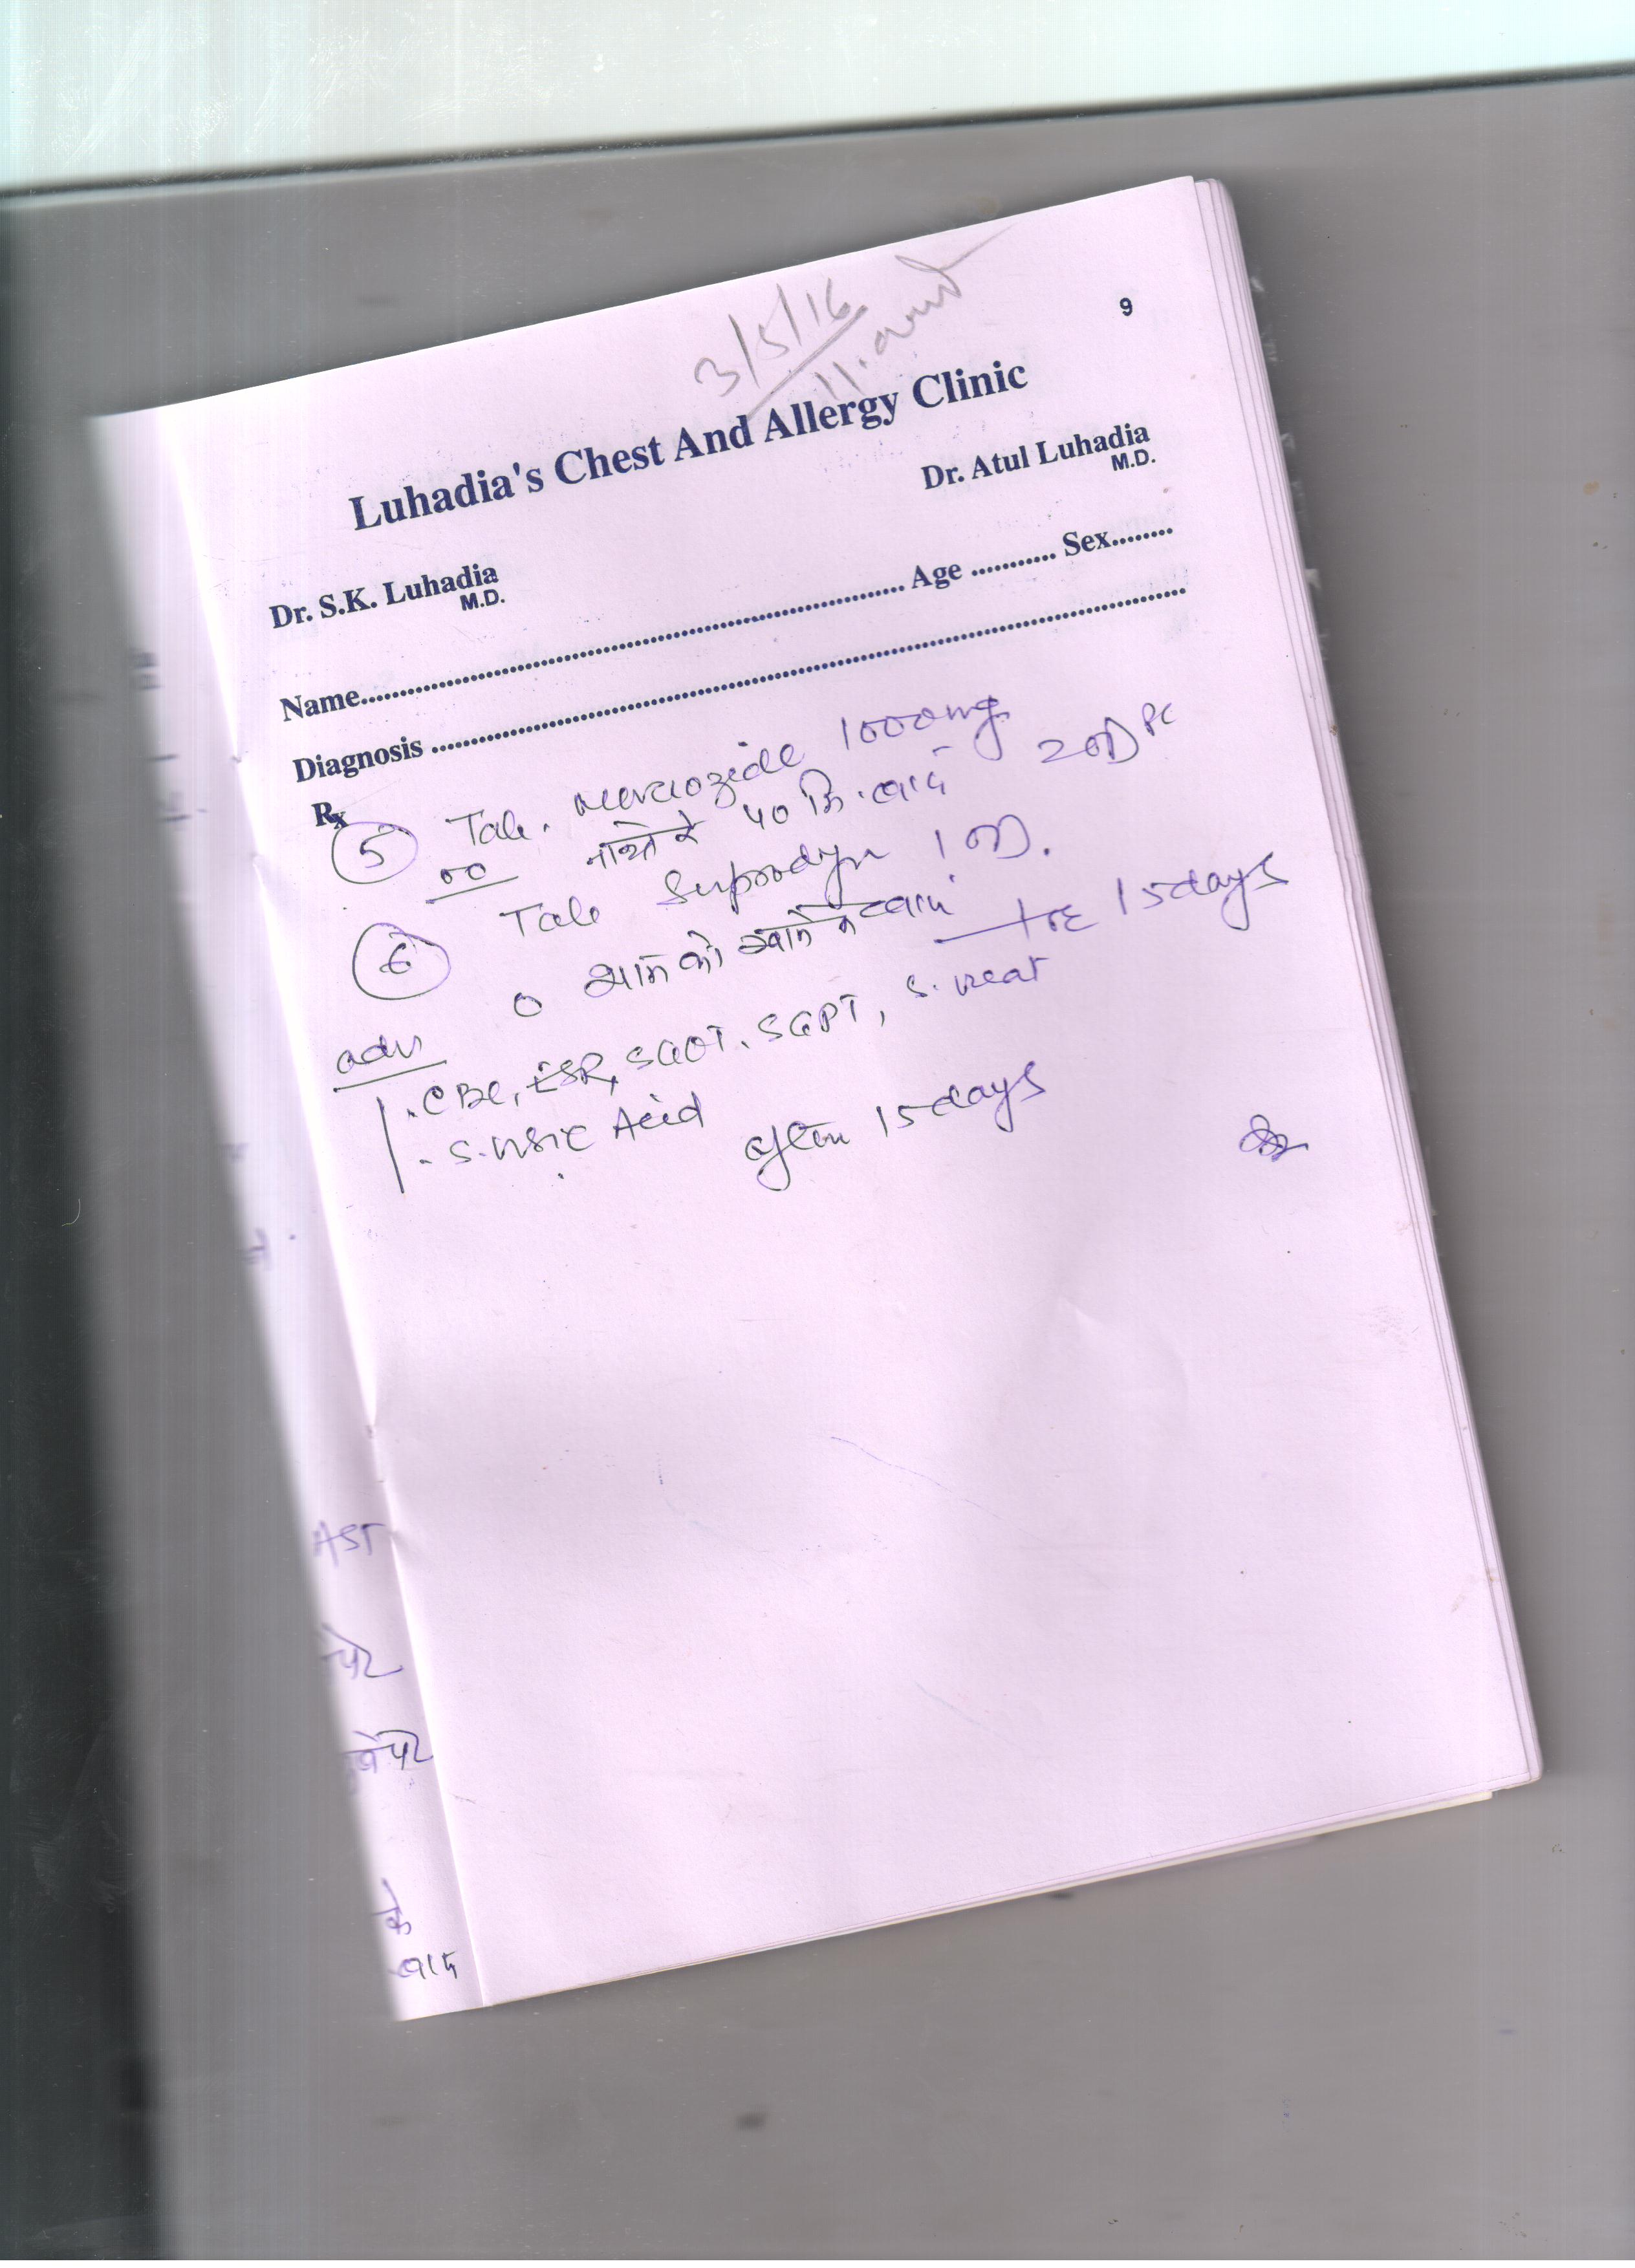 9
3/5/16
Luhadia's Chest And Allergy Clinic
Dr. S.K. Luhadia
M.D.
Dr. Atul Luhadia
M.D.
Name.......... Age .......... Sex.........
Diagnosis ..........
Rx
5 Tab. 1000mg 2 OD PC
00 नाश्ते के 40 मि. बाद
6 Tab Supradyn 1 OD.
0 शाम को खाने के बाद
15 days
adv
. CBC, ESR, SGOT, SGPT, S. creat
. S. Uric Acid
after 15 days
AST
बाद